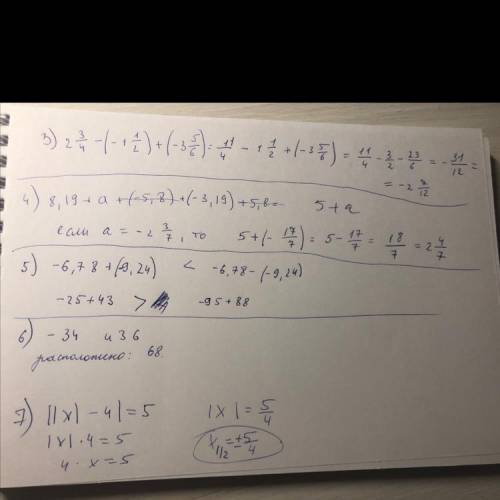 3) 2 3/4 - (-1 1/2) + (-3 5/6) = 11/4 - 1 1/2 + (-3 5/6) = 11/4 - 3/2 - 23/6 = - 31/12 =
= -2 7/12
4) 8,19 + a + (-5,8) + (-3,19) + 5,8 = 5 + a
если a = -2 3/7, то 5 + (- 17/7) = 5 - 17/7 = 18/7 = 2 4/7
5) -6,78 + (-9,24) < -6,78 - (-9,24)
-25 + 43 > -95 + 88
6) -34 и 36
расположено: 68
7) ||x| - 4| = 5 |x| = 5/4
|x| · 4 = 5 x1/2 = ± 5/4
4 · x = 5